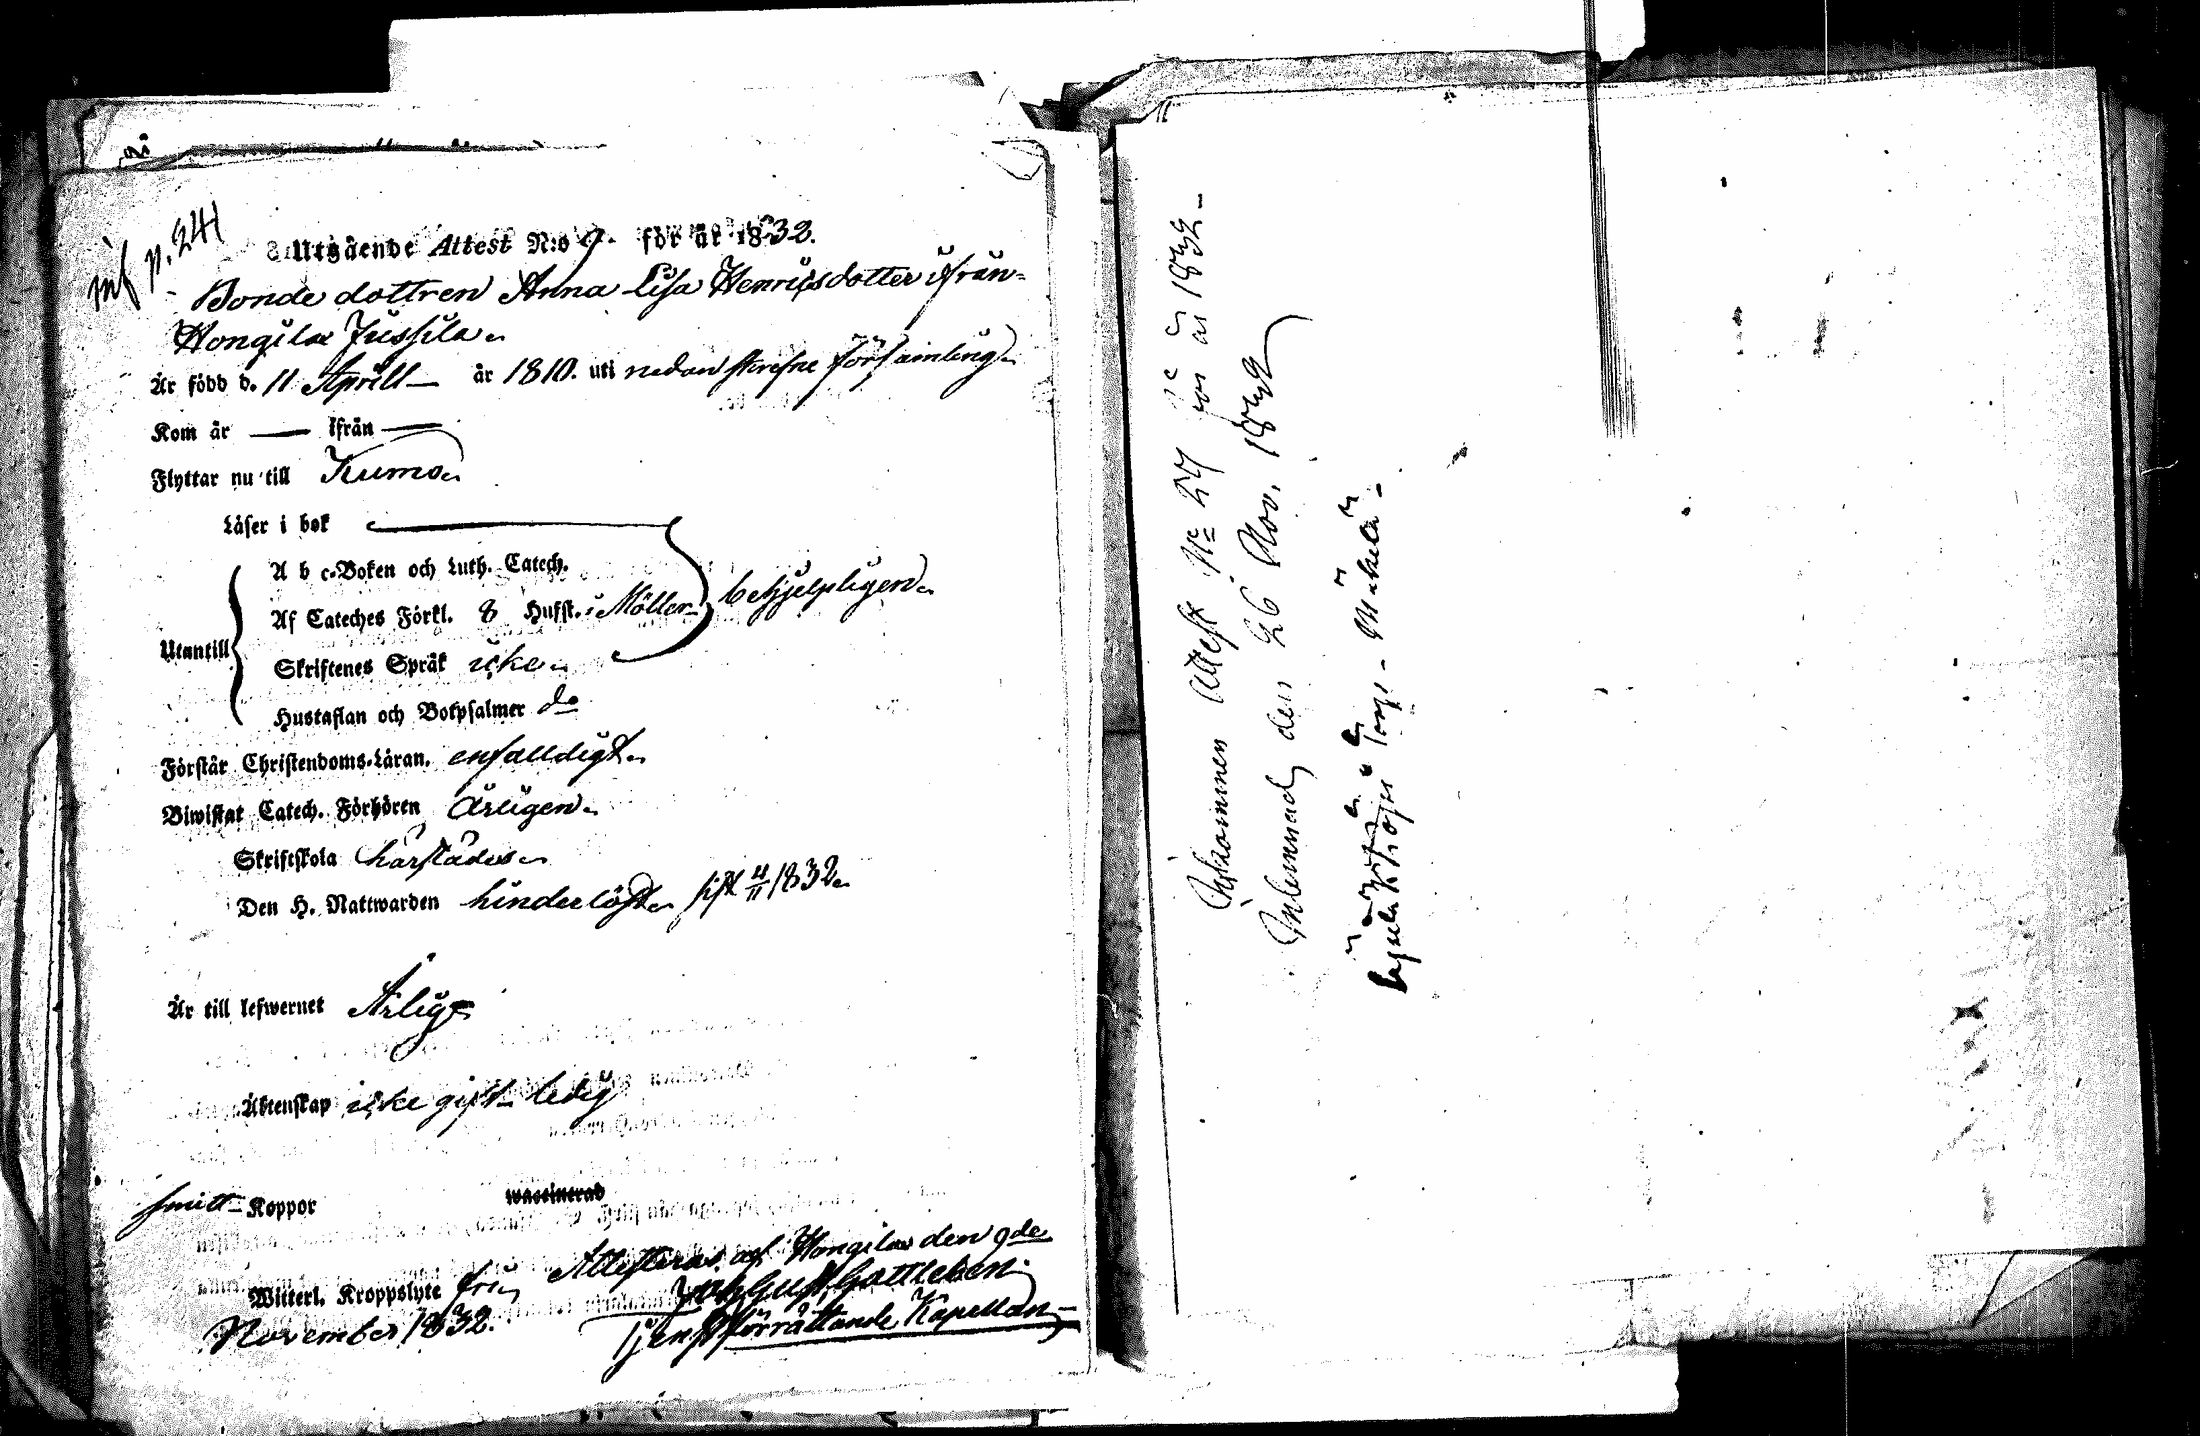 inf p. 241
Utgående Attest N:o 9. för år 1832.
Bonde dottren Anna Lisa Henricsdotter ifrån
Hongilax Jussila.
Är född d. 11 Aprill — år 1810. uti nedanskrefne församling.
Kom år — ifrån —
Flyttar nu till Kumo.
Läser i bok
A b c-Boken och Luth. Catech.
Af Cateches Förkl. 8 Hufst. i Möller behjelpligen.
Utantill
Skriftenes Språk icke.
Hustaflan och Botpsalmer do
Förstår Christendoms-Läran. enfalldigt.
Biwistat Catech. Förhören Årligen.
Skriftskola härstädes.
Den H. Nattwarden hinderlöst sist 4/11 1832.
Är till lefwernet Ärlig
Äktenskap icke gift ledig
smitt Koppor waccinerad
Attesteras af Hongilax den 9de
Witterl. Kroppslyte fri
November 1832.
Joh. Gust. Gottleben.
Tjenstförrättande Kapellan
Inkommen Attest No 27 för år 1832
Inlemnad den 26 Nov. 1832
Torp Mäkelä